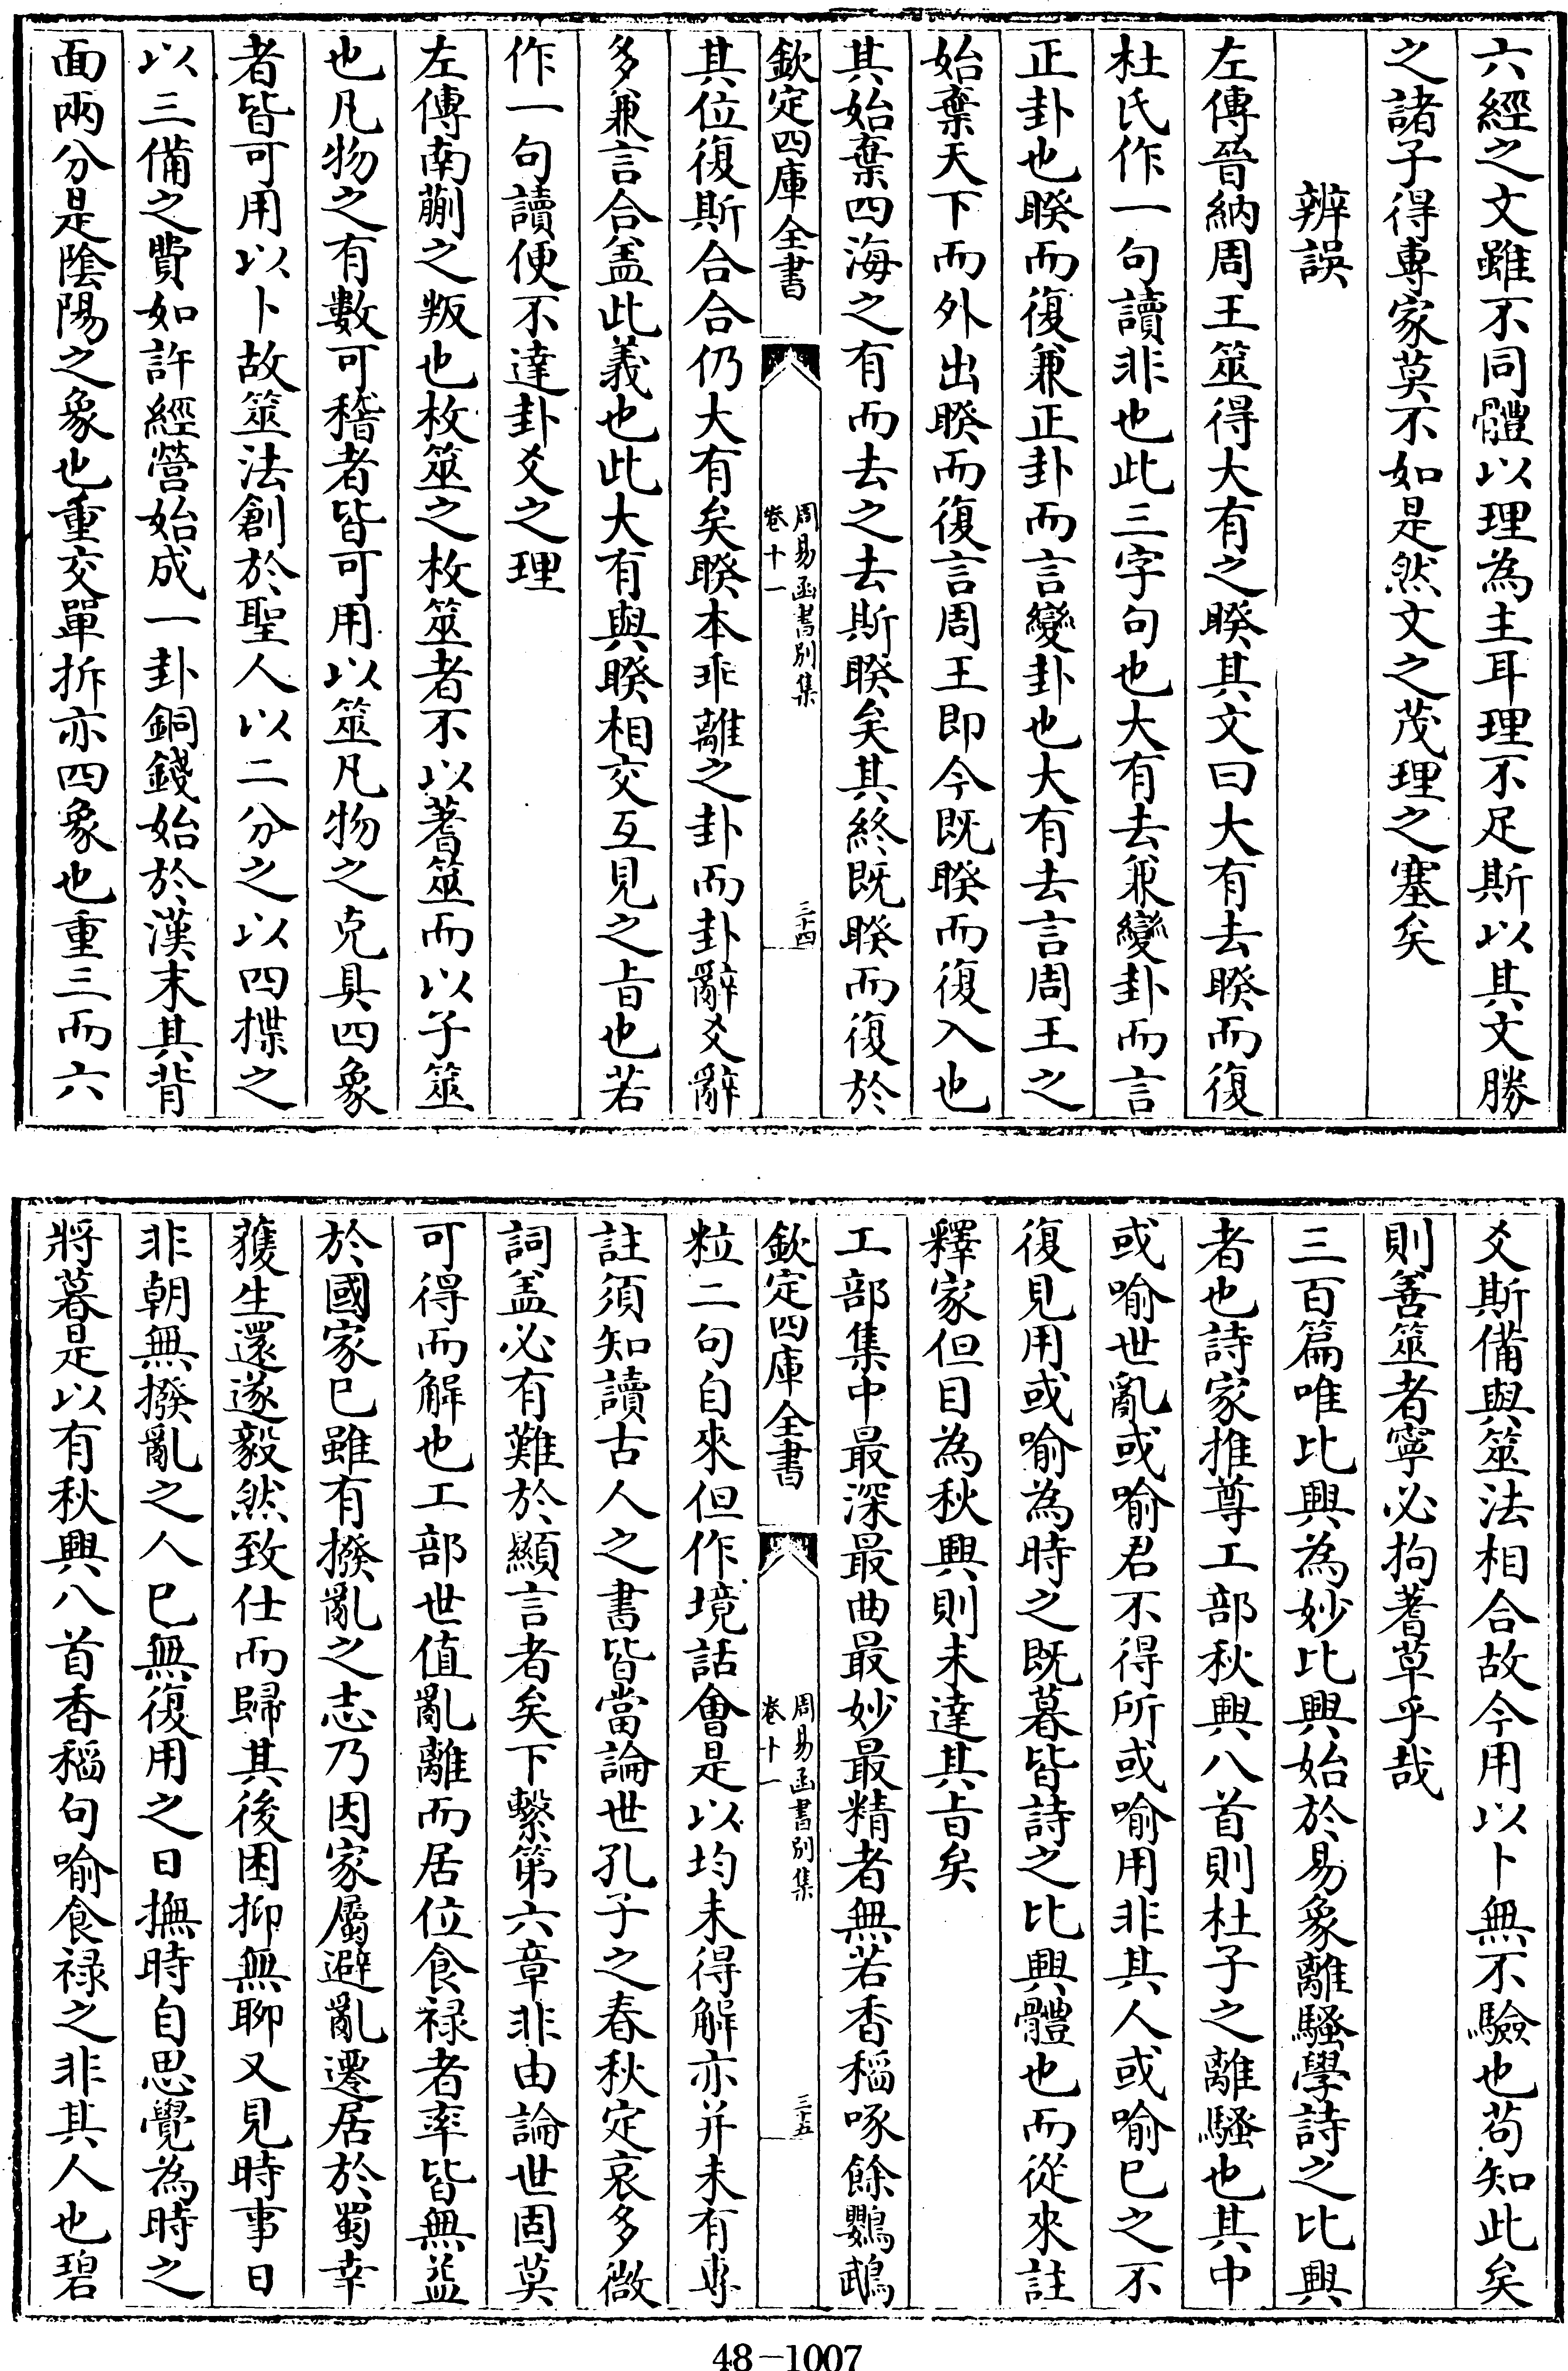 六經之文雖不同體以理為主耳理不足斯以其文勝
之諸子得專家莫不如是然文之茂理之塞矣
辨誤
左傳晉納周王筮得大有之睽其文曰大有去睽而復
杜氏作一句讀非也此三字句也大有去兼變卦而言
正卦也睽而復兼正卦而言變卦也大有去言周王之
始棄天下而外出睽而復言周王即今既睽而復入也
其始棄四海之有而去之去斯睽矣其終既睽而復於
欽定四庫全書
周易函書別集
卷十一
三十四
其位復斯合合仍大有矣睽本乖離之卦而卦辭爻辭
多兼言合盖此義也此大有與睽相交互見之㫖也若
作一句讀便不達卦爻之理
左傳南蒯之叛也枚筮之枚筮者不以蓍筮而以子筮
也凡物之有數可稽者皆可用以筮凡物之克具四象
者皆可用以卜故筮法創於聖人以二分之以四揲之
以三備之費如許經營始成一卦銅錢始於漢末其背
面兩分是隂陽之象也重交單拆亦四象也重三而六
爻斯備與筮法相合故今用以卜無不驗也苟知此矣
則善筮者寧必拘蓍草乎哉
三百篇唯比興為妙比興始於易象離騷學詩之比興
者也詩家推尊工部秋興八首則杜子之離騷也其中
或喻世亂或喻君不得所或喻用非其人或喻已之不
復見用或喻為時之既暮皆詩之比興體也而從來註
釋家但目為秋興則未達其㫖矣
工部集中最深最曲最妙最精者無若香稻啄餘鸚鵡
欽定四庫全書
周易函書別集
卷十一
三十五
粒二句自來但作境話會是以均未得解亦并未有專
註須知讀古人之書皆當論世孔子之春秋定哀多微
詞盖必有難於顯言者矣下繫第六章非由論世固莫
可得而解也工部世值亂離而居位食禄者率皆無益
於國家已雖有撥亂之志乃因家屬避亂遷居於蜀幸
獲生還遂毅然致仕而歸其後困抑無聊又見時事日
非朝無撥亂之人已無復用之日撫時自思覺為時之
將暮是以有秋興八首香稻句喻食禄之非其人也碧
48-1007